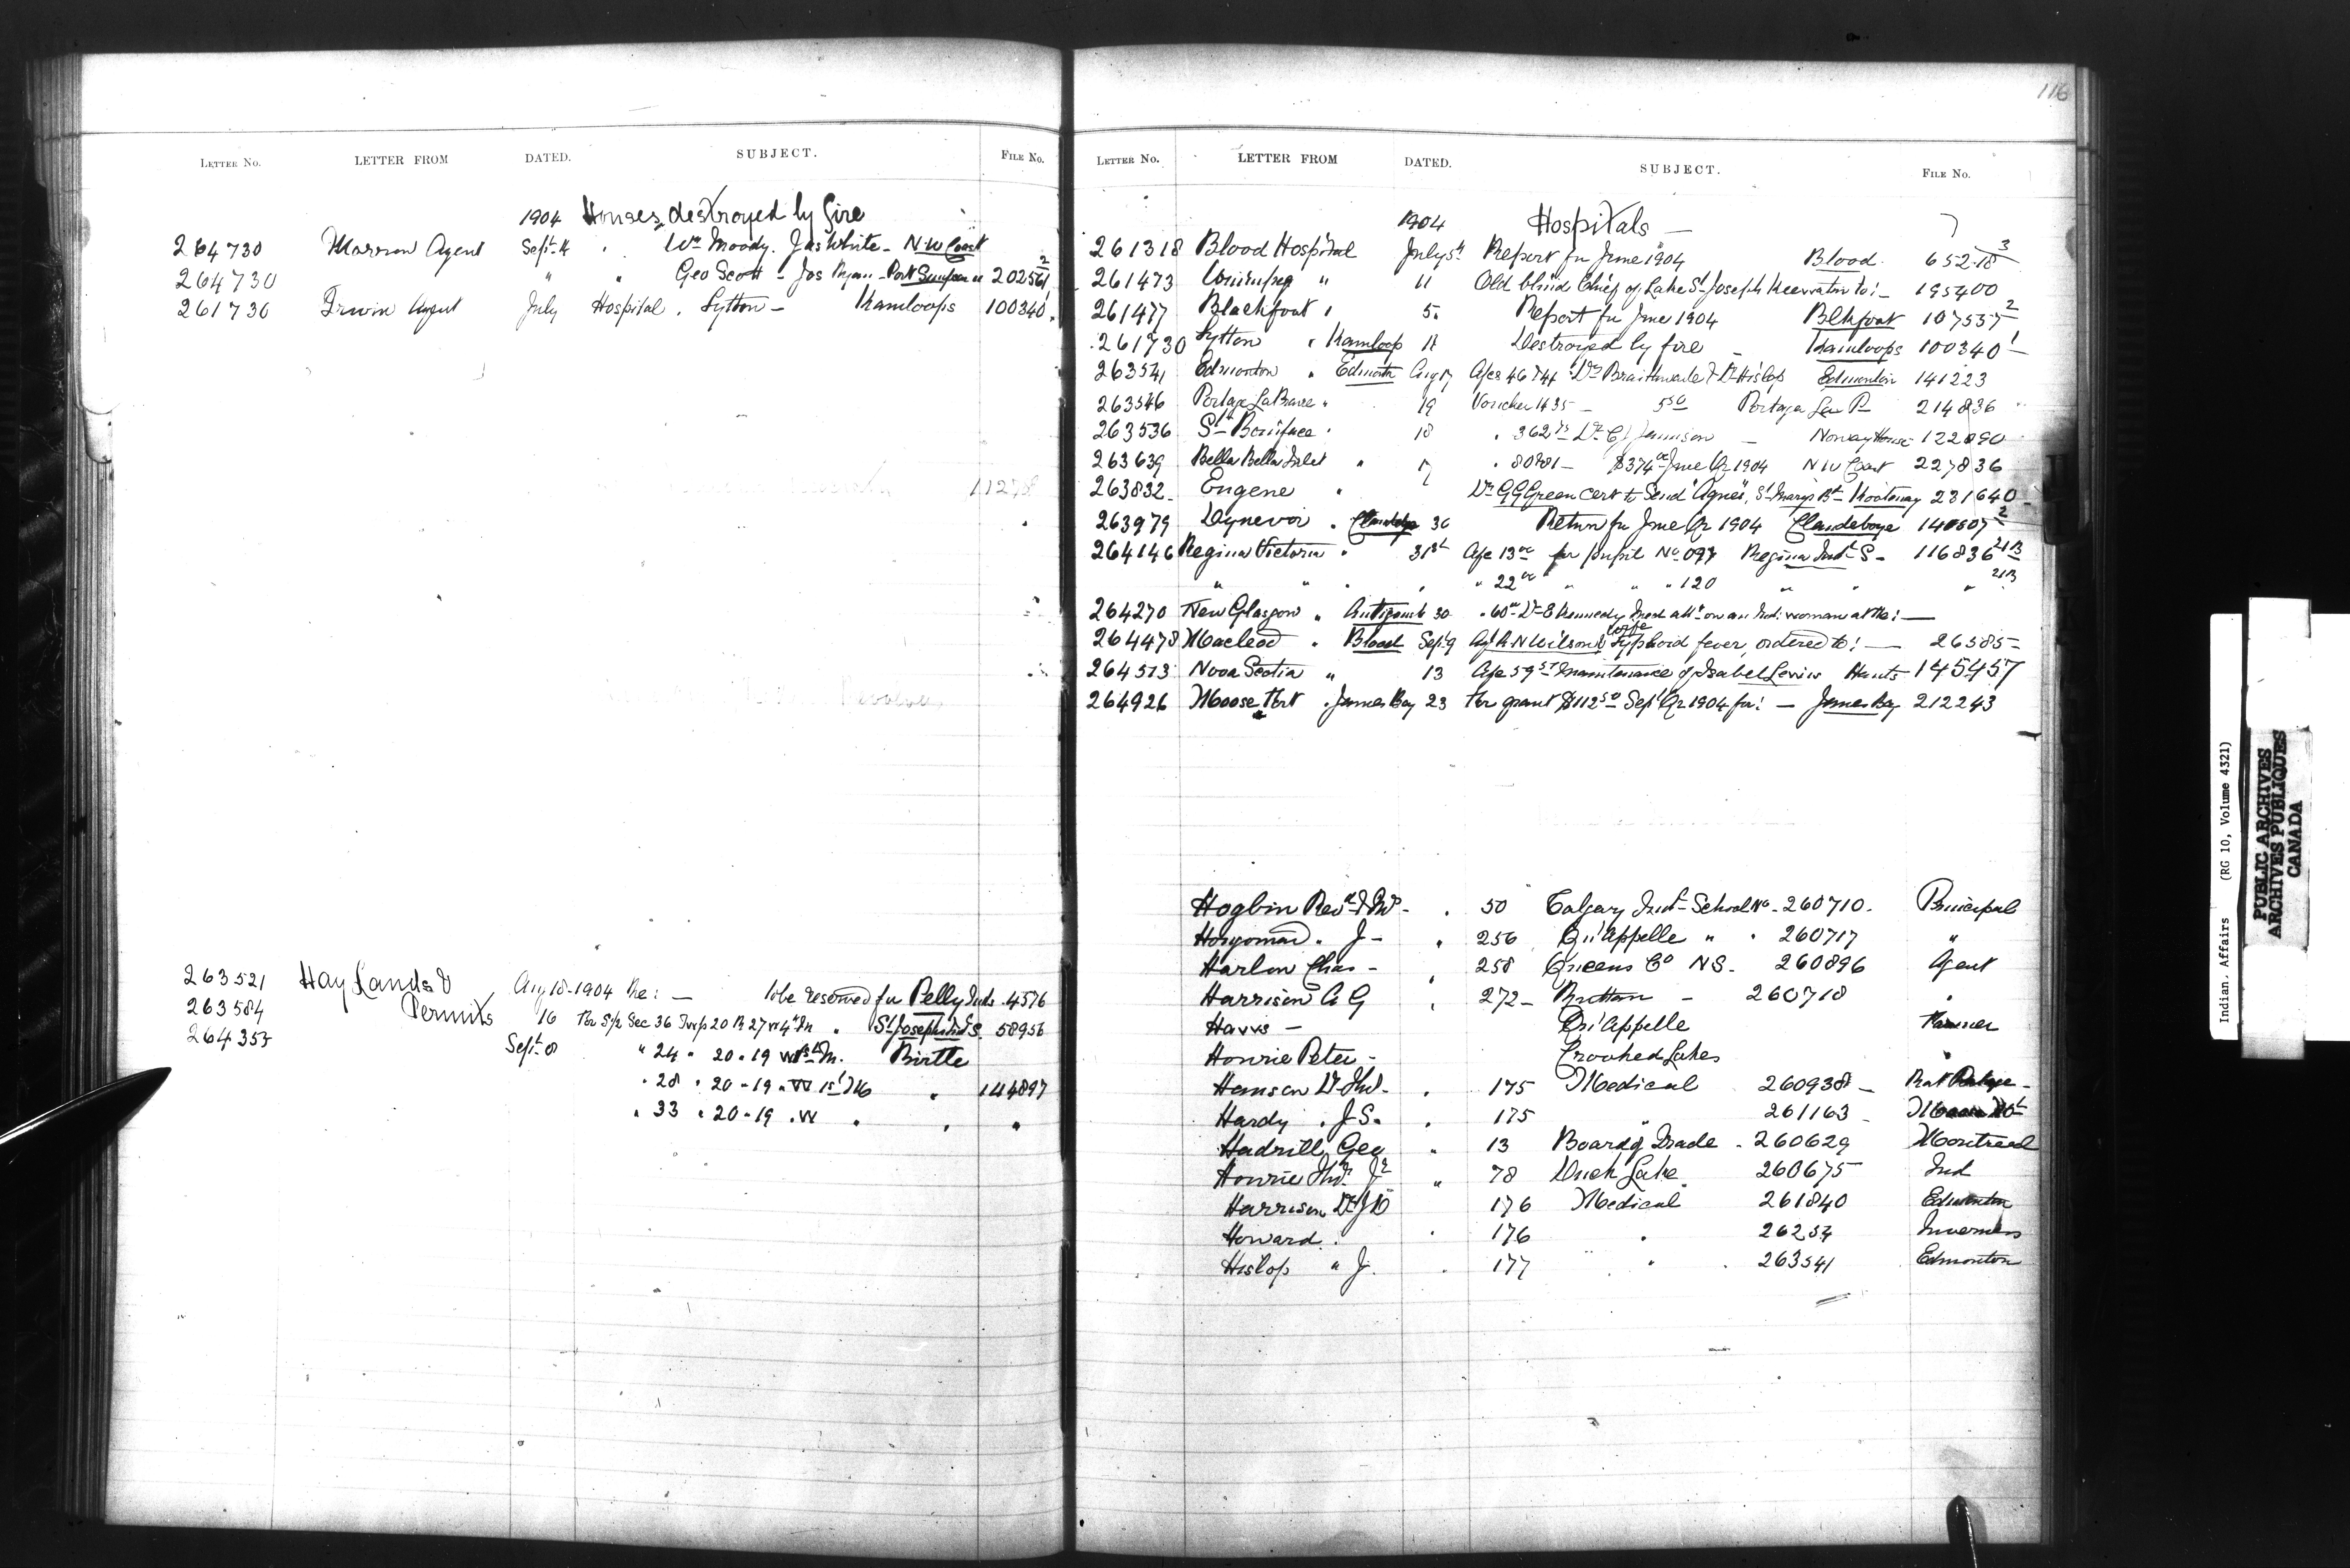 116
LETTER NO. LETTER FROM DATED. SUBJECT. FILE NO.
1904 Houses destroyed by fire
264730 Morrow Agent Sept 14 " Wm Moody. Jas White - N W Coast
264730 " " Geo Scott - Jos Ryan - Port Simpson " 202561 2
261730 Irwin Agent July Hospital. Lytton - Kamloops 100340 1
263521 Hay Lands & Aug 18-1904 Re: — to be reserved for Pelly Inds. 4576
263584 Permits 16 For S/2 Sec 36 Twp 20 R 27 W 4th M " St Josephs Ind S. 58956
264353 Sept 8 " 24 " 20 - 19 W 1st M. Birtle
" 28 " 20 - 19 " W 1st M " 144897
" 33 " 20 - 19 . W " " "
LETTER NO. LETTER FROM DATED. SUBJECT. FILE NO.
1904 Hospitals —
261318 Blood Hospital July 5th Report for June 1904 Blood. 652-18 3
261473 Winnipeg " 11 Old blind Chief of Lake St Joseph Keewatin to: - 195400
261477 Blackfoot " 5. Report for June 1904 Blkfoot 107537 2
261730 Lytton " Kamloop 14 Destroyed by fire - Kamloops 100340 1
263541 Edmonton " Edmontn Aug 17 A/cs 46 & 44 Drs Braithwaite & Dr Hislop Edmonton 141223
263546 Portage La Prairie " 19 Voucher 1435 - 5 50 Portage La P- 214836
263536 St Boniface " 18 " 362 75 Dr C J Jamison - Norway House 122890
263639 Bella Bella Inlet " 17 " 80881 - $374 00 June Qr 1904 N W Coast 227836
263832 Eugene " Dr G G Green cert to send "Agnes", St Marys Bd - Kootenay 231640
263979 Dynevor " Clandeboye 30 Return for June Qr 1904 Clandeboye 140507 2
264146 Regina Victoria " 31st A/c 13 00 for pupil No 097 Regina Indl S - 116836 21B
" " " " " 22 00 " " " 120 " " " 21B
264270 New Glasgow " Antigonish 30 " 60 00 Dr E Kennedy Med att on an Ind: woman at the: —
264478 Macleod " Blood Sept 9 Agt R N Wilson's wife typhoid fever, ordered to: — 26585
264513 Nova Scotia " 13 A/c 59 57 Maintenance of Isabel Levi Hants 145457
264926 Moose Fort " James Bay 23 For grant $112 50 Sept Qr 1904 for: — James Bay 212243
Hogbin Revd Geo - . 50 Calgary Indl School No - 260710. Principal
Hugonard " J - " 256 Qu'Appelle " " 260717 "
Harlow Chas - " 258 Queens Co N S. 260896 Agent
Harrison C G " 272 - - 260718 "
Harris - Qu'Appelle Farmer
Hourie Peter - Crooked Lakes "
Hanson Dr Thos. . 175 Medical 260938 - Rat Portage -
Hardy " J S. " 175 " 261163 -
Hadrill Geo " 13 Board of Trade - 260629 Montreal
Hourie Thos. Jr " 78 Duck Lake 260675 Ind
Harrison Dr J D 176 Medical 261840 Edmonton
Howard " . 176 " 26254 Inverness
Hislop " J. . 177 " 263541 Edmonton
Indian Affairs (RG 10, Volume 4321)
PUBLIC ARCHIVES
ARCHIVES PUBLIQUES
CANADA